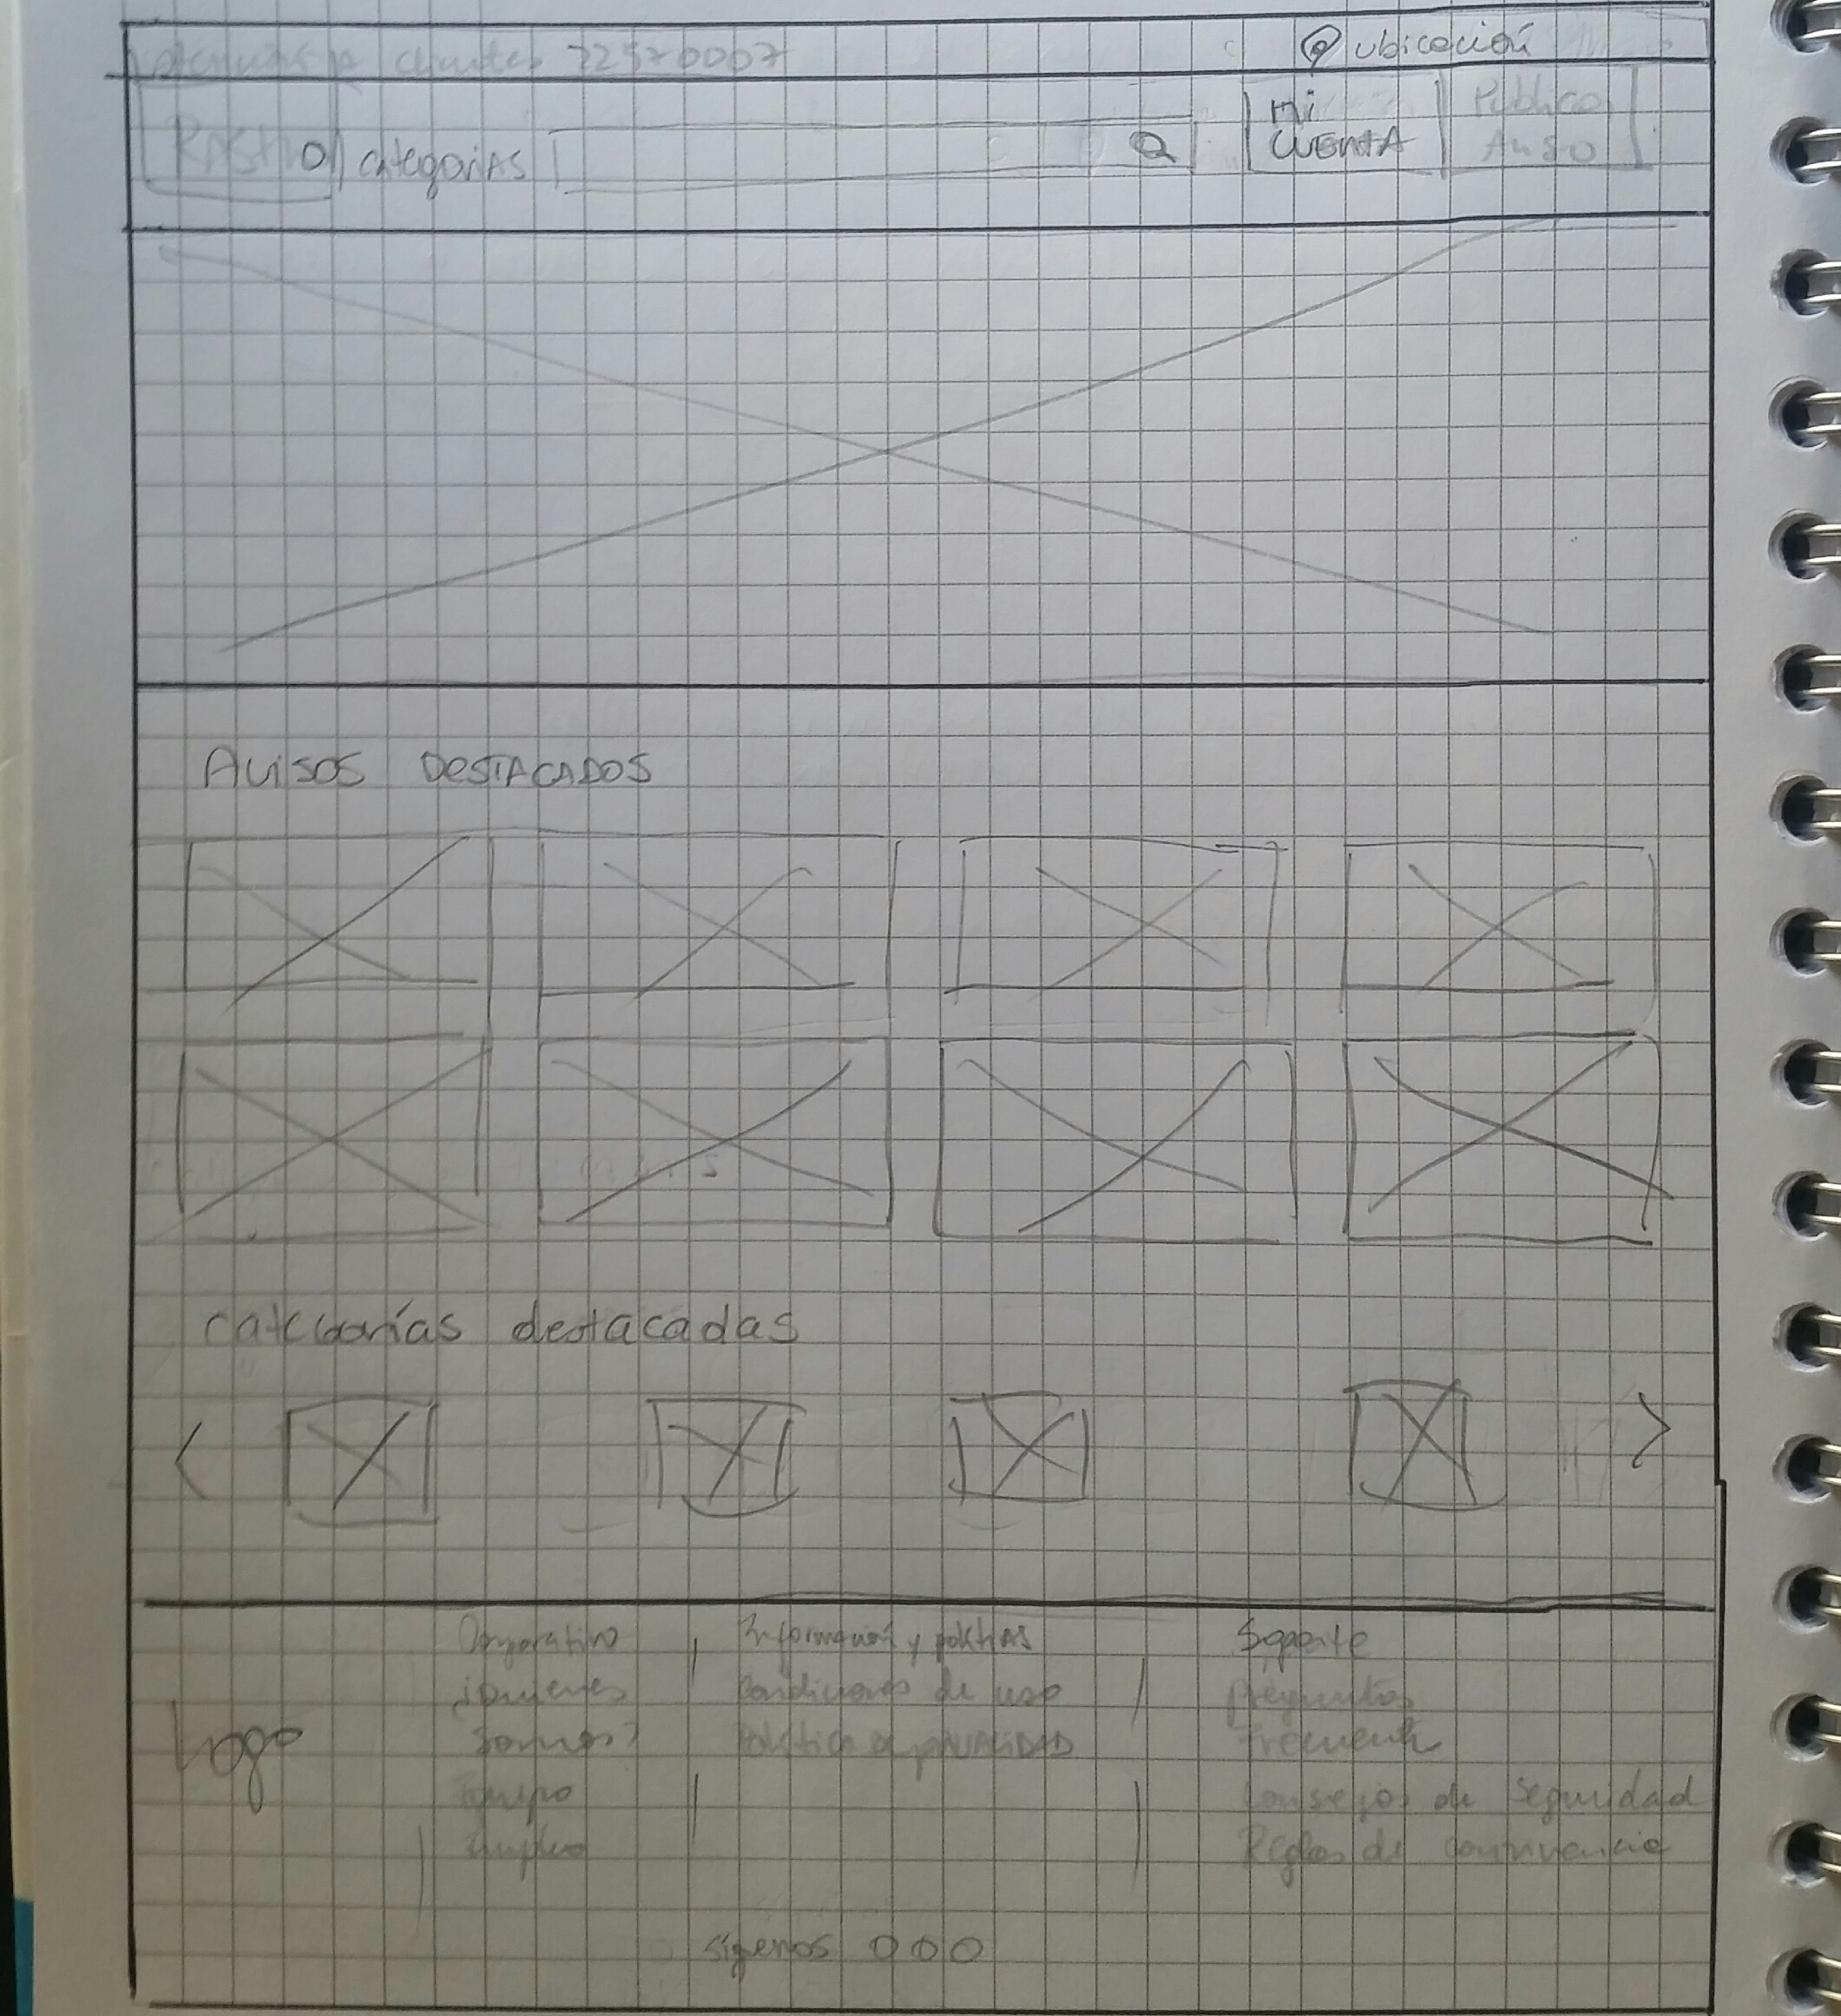 clientes 22570007 ubicación
Rastro categorías
Mi
CUENTA
Publica
Aviso
Avisos Destacados
categorías destacadas
Logo
Corporativo
¿Quienes
Somos?
Equipo
Empleo
Información y políticas
Condiciones de uso
Política de privacidad
Soporte
Preguntas
Frecuente
Consejos de Seguridad
Reglas de convivencia
Sígenos